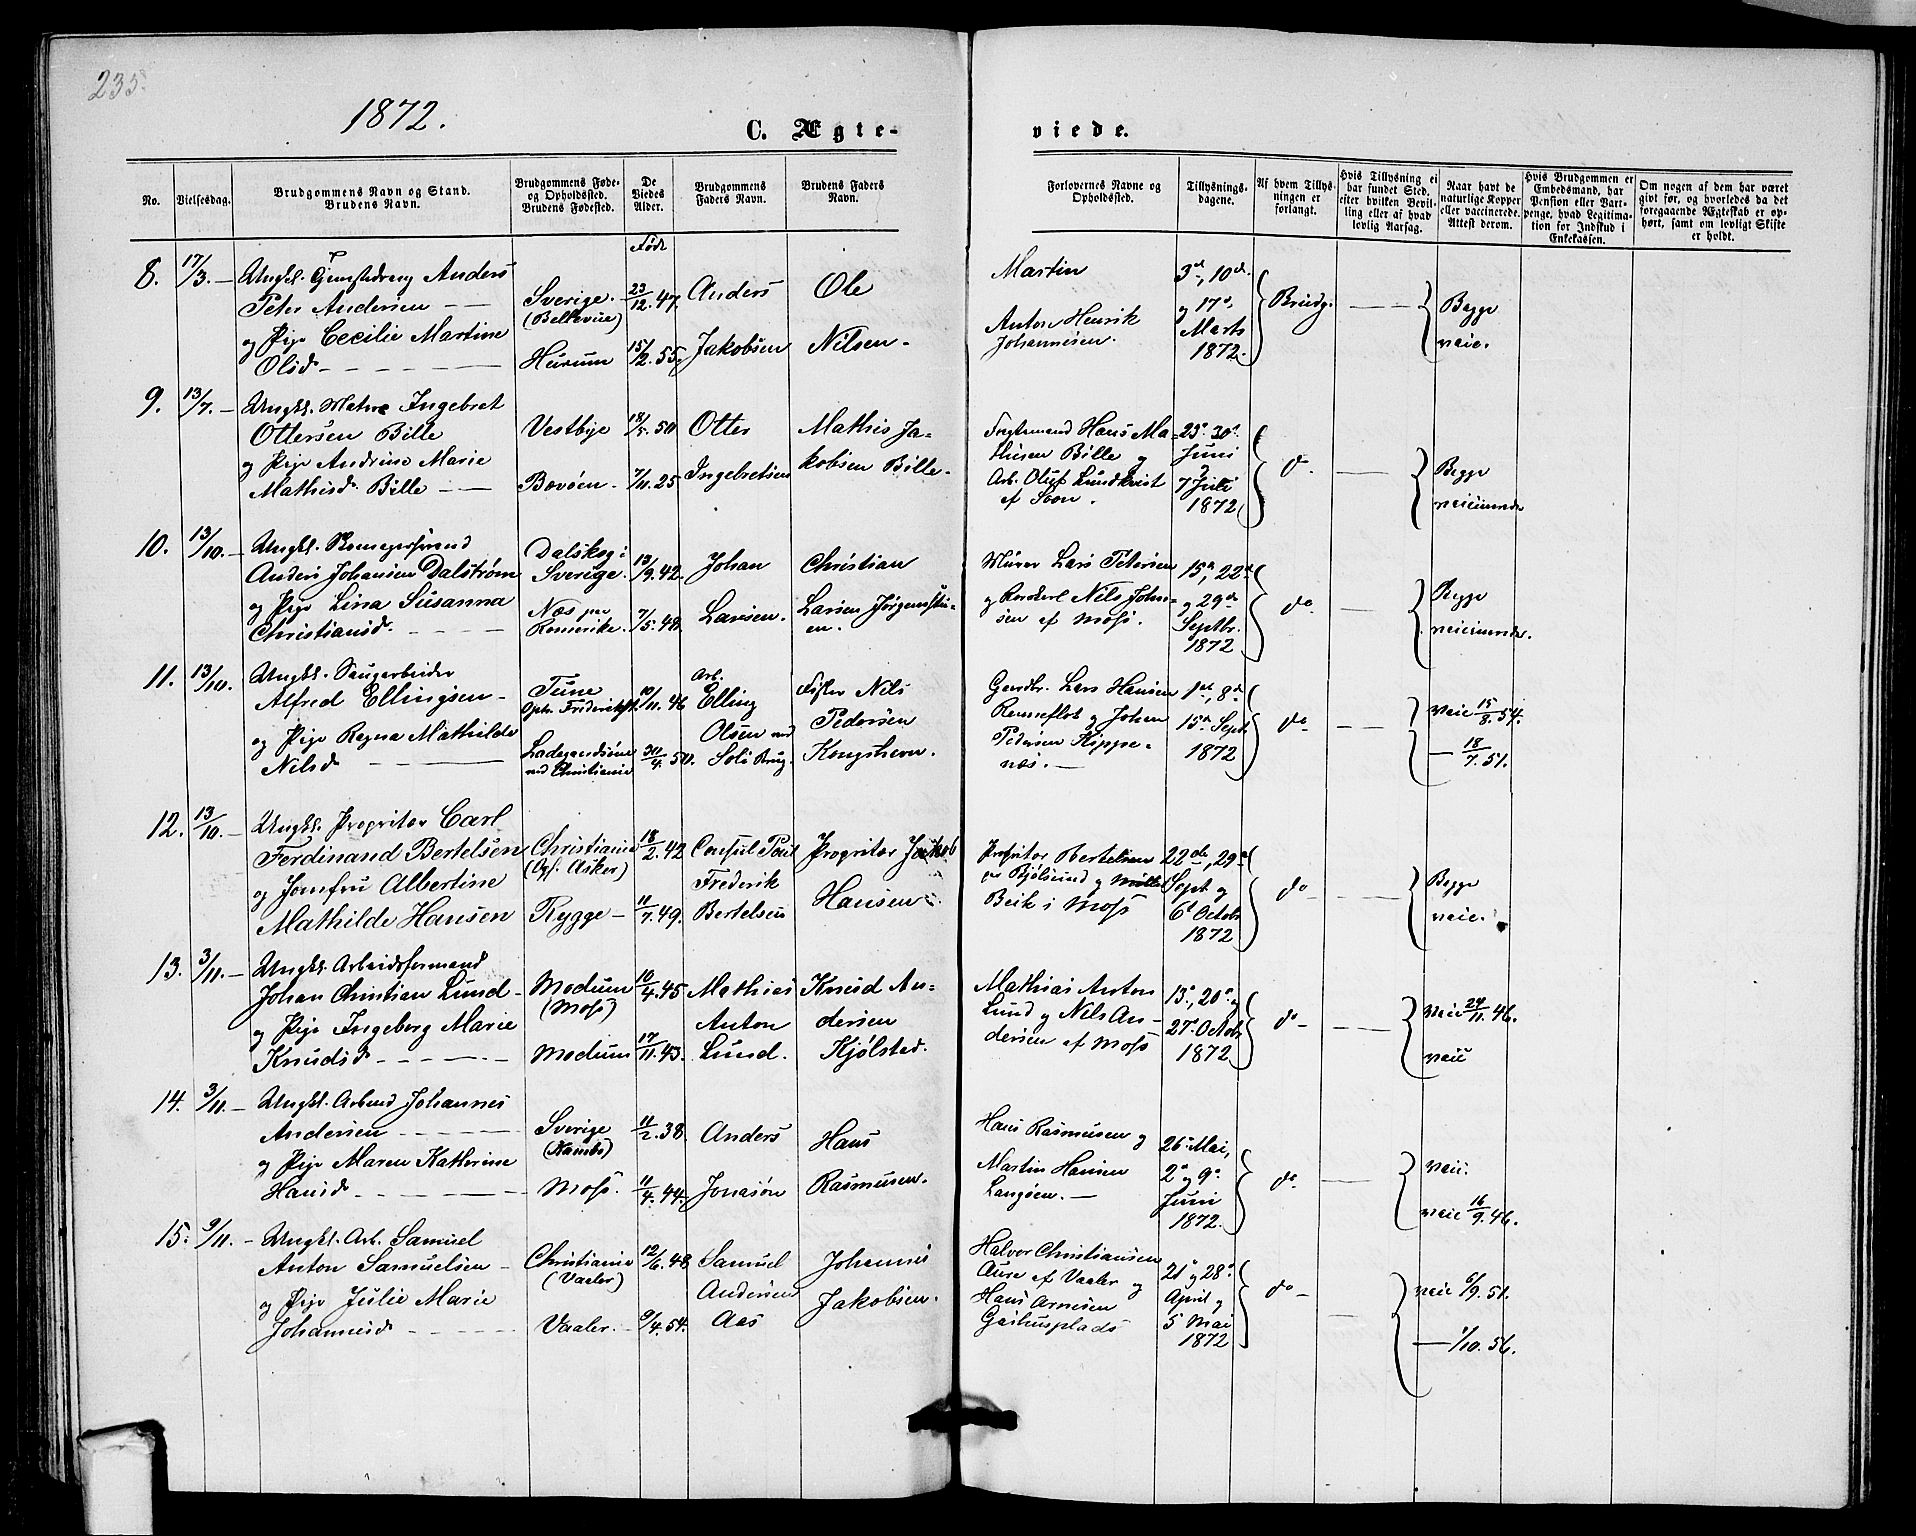 235.
1872.
C. Ægte-
viede.
No.
Vielsesdag.
Brudgommens Navn og Stand.
Brudens Navn.
Brudgommens Føde-
og Opholdssted.
Brudens Fødested.
De
Viedes
Alder.
Brudgommens
Faders Navn.
Brudens Faders
Navn.
Forlovernes Navne og
Opholdssted.
Tillysnings-
dagene.
Af hvem Tillys-
ningen er
forlangt.
Hvis Tillysning ei
har fundet Sted,
efter hvilken Bevil-
ling eller af hvad
lovlig Aarsag.
Naar havt de
naturlige Kopper
eller vaccinerede.
Attest derom.
Hvis Brudgommen er
Embedsmand, har
Pension eller Vart-
penge, hvad Legitima-
tion for Indskud i
Enkekassen.
Om nogen af dem har været
givt før, og hvorledes da det
foregaaende Ægteskab er op-
hørt, samt om lovligt Skifte
er holdt.
Født
8. 17/3. — Ungkl. Anders
Peter Andersen — —
og Pige Cecilie Martine
Olsd. — — —
Sverige.
(Bellevue)
Hurum
23/12. 47.
15/2. 55.
Anders
Jakobsen
Ole
Nilsen.
Martin
Anton Henrik
Johannesen.
3d, 10d.
og 17d,
Marts
1872.
Brudg.
Begge
vacc.
9. 13/7. — Ungkl. Ingebret
Ottersen Bille
og Pige Andrine Marie
Mathisd. Bille — —
Vestbye
Bovøen
18/5. 50
7/11. 25
Otter
Ingebretsen
Mathis Ja-
kobsen Bille.
Hans Ma-
thisen Bille og
Arb. Oluf Lundkvist
af Soon.
23d, 30d.
Juni
og
7 Juli
1872
do.
Begge
10. 13/10. — Ungkl.
Anders Johansen Dalstrøm
og Pige Lina Susanna
Christiansd. — — —
Dalskog i
Sverige.
Næs paa
Romerike.
13/9. 42.
7/5. 48.
Johan
Larsen.
Christian
Larsen Jørgenstu-
en.
Murer Lars Petersen
og Nils Johan-
sen af Moss.
15d, 22d
og 29de
Septbr.
1872
do.
Begge
11. 13/10. — Ungkl. Saugarbeider
Alfred Ellingsen —
og Pige Ragna Mathilde
Nilsd. — — —
Tune
Oph. Frederikst.
Ladegaardsøen
ved Christiania
10/11. 46
30/4. 50.
Arb.
Elling
Olsen ved
Soli Brug.
Fisker Nils
Pedersen
Kongshavn.
Gaardbr. Lars Hansen
Renneflot og Johan
Pedersen Kippe-
næs. —
1st, 8de
15de Sept.
1872
do
vacc 15/8. 54.
— 18/7. 51.
12. 13/10. — Ungkl. Propritær Carl
Ferdinand Bertelsen
og Jomfru Albertine
Mathilde Hansen
Christiania
(Opf. Asker)
Rygge —
18/2. 42
11/7. 49.
Consul Poul
Frederik
Bertelsen
Propritær Jakob
Hansen
Propritær Bertelsen
og
Beik i Moss
22de, 29de
Sept. og
6te Octob
1872
do —
Begge
vacc.
13. 3/11. — Ungkl. Arbeidsformand
Johan Christian Lund —
og Pige Ingeborg Marie
Knudsd. — — —
Modum
(Moss)
Modum
10/4. 45
17/11. 43.
Mathias
Anton
Lund.
Knud An-
dersen
Kjølstad.
Mathias Anton
Lund og Nils An-
dersen af Moss
13d, 20d og
27d Octob
1872
do —
vacc 24/11. 46.
vacc
14. 3/11. — Ungkl. Arbmd Johannes
Andersen — — —
og Pige Maren Katherine
Hansd. — — —
Sverige
(Kambo)
Moss.
11/2. 38
11/4. 44.
Anders
Jonasøn
Hans
Rasmusen.
Hans Rasmusen og
Martin Hansen
Langøen. —
26d Mai,
2d og 9d
Juni
1872.
do.
vacc.
vacc 16/9. 46.
15. 9/11. — Ungkl. Arb. Samuel
Anton Samuelsen —
og Pige Julie Marie
Johannesd. — — —
Christiania
(Vaaler)
Vaaler. —
12/6. 48
9/4. 54.
Samuel
Andersen
Aas
Johannes
Jakobsen.
Halvor Christiansen
Aure af Vaaler og
Hans Arnesen
Gashusplads
21d og 28d
April og
5 Mai
1872
do —
vacc 6/9. 51.
— 1/10. 56.